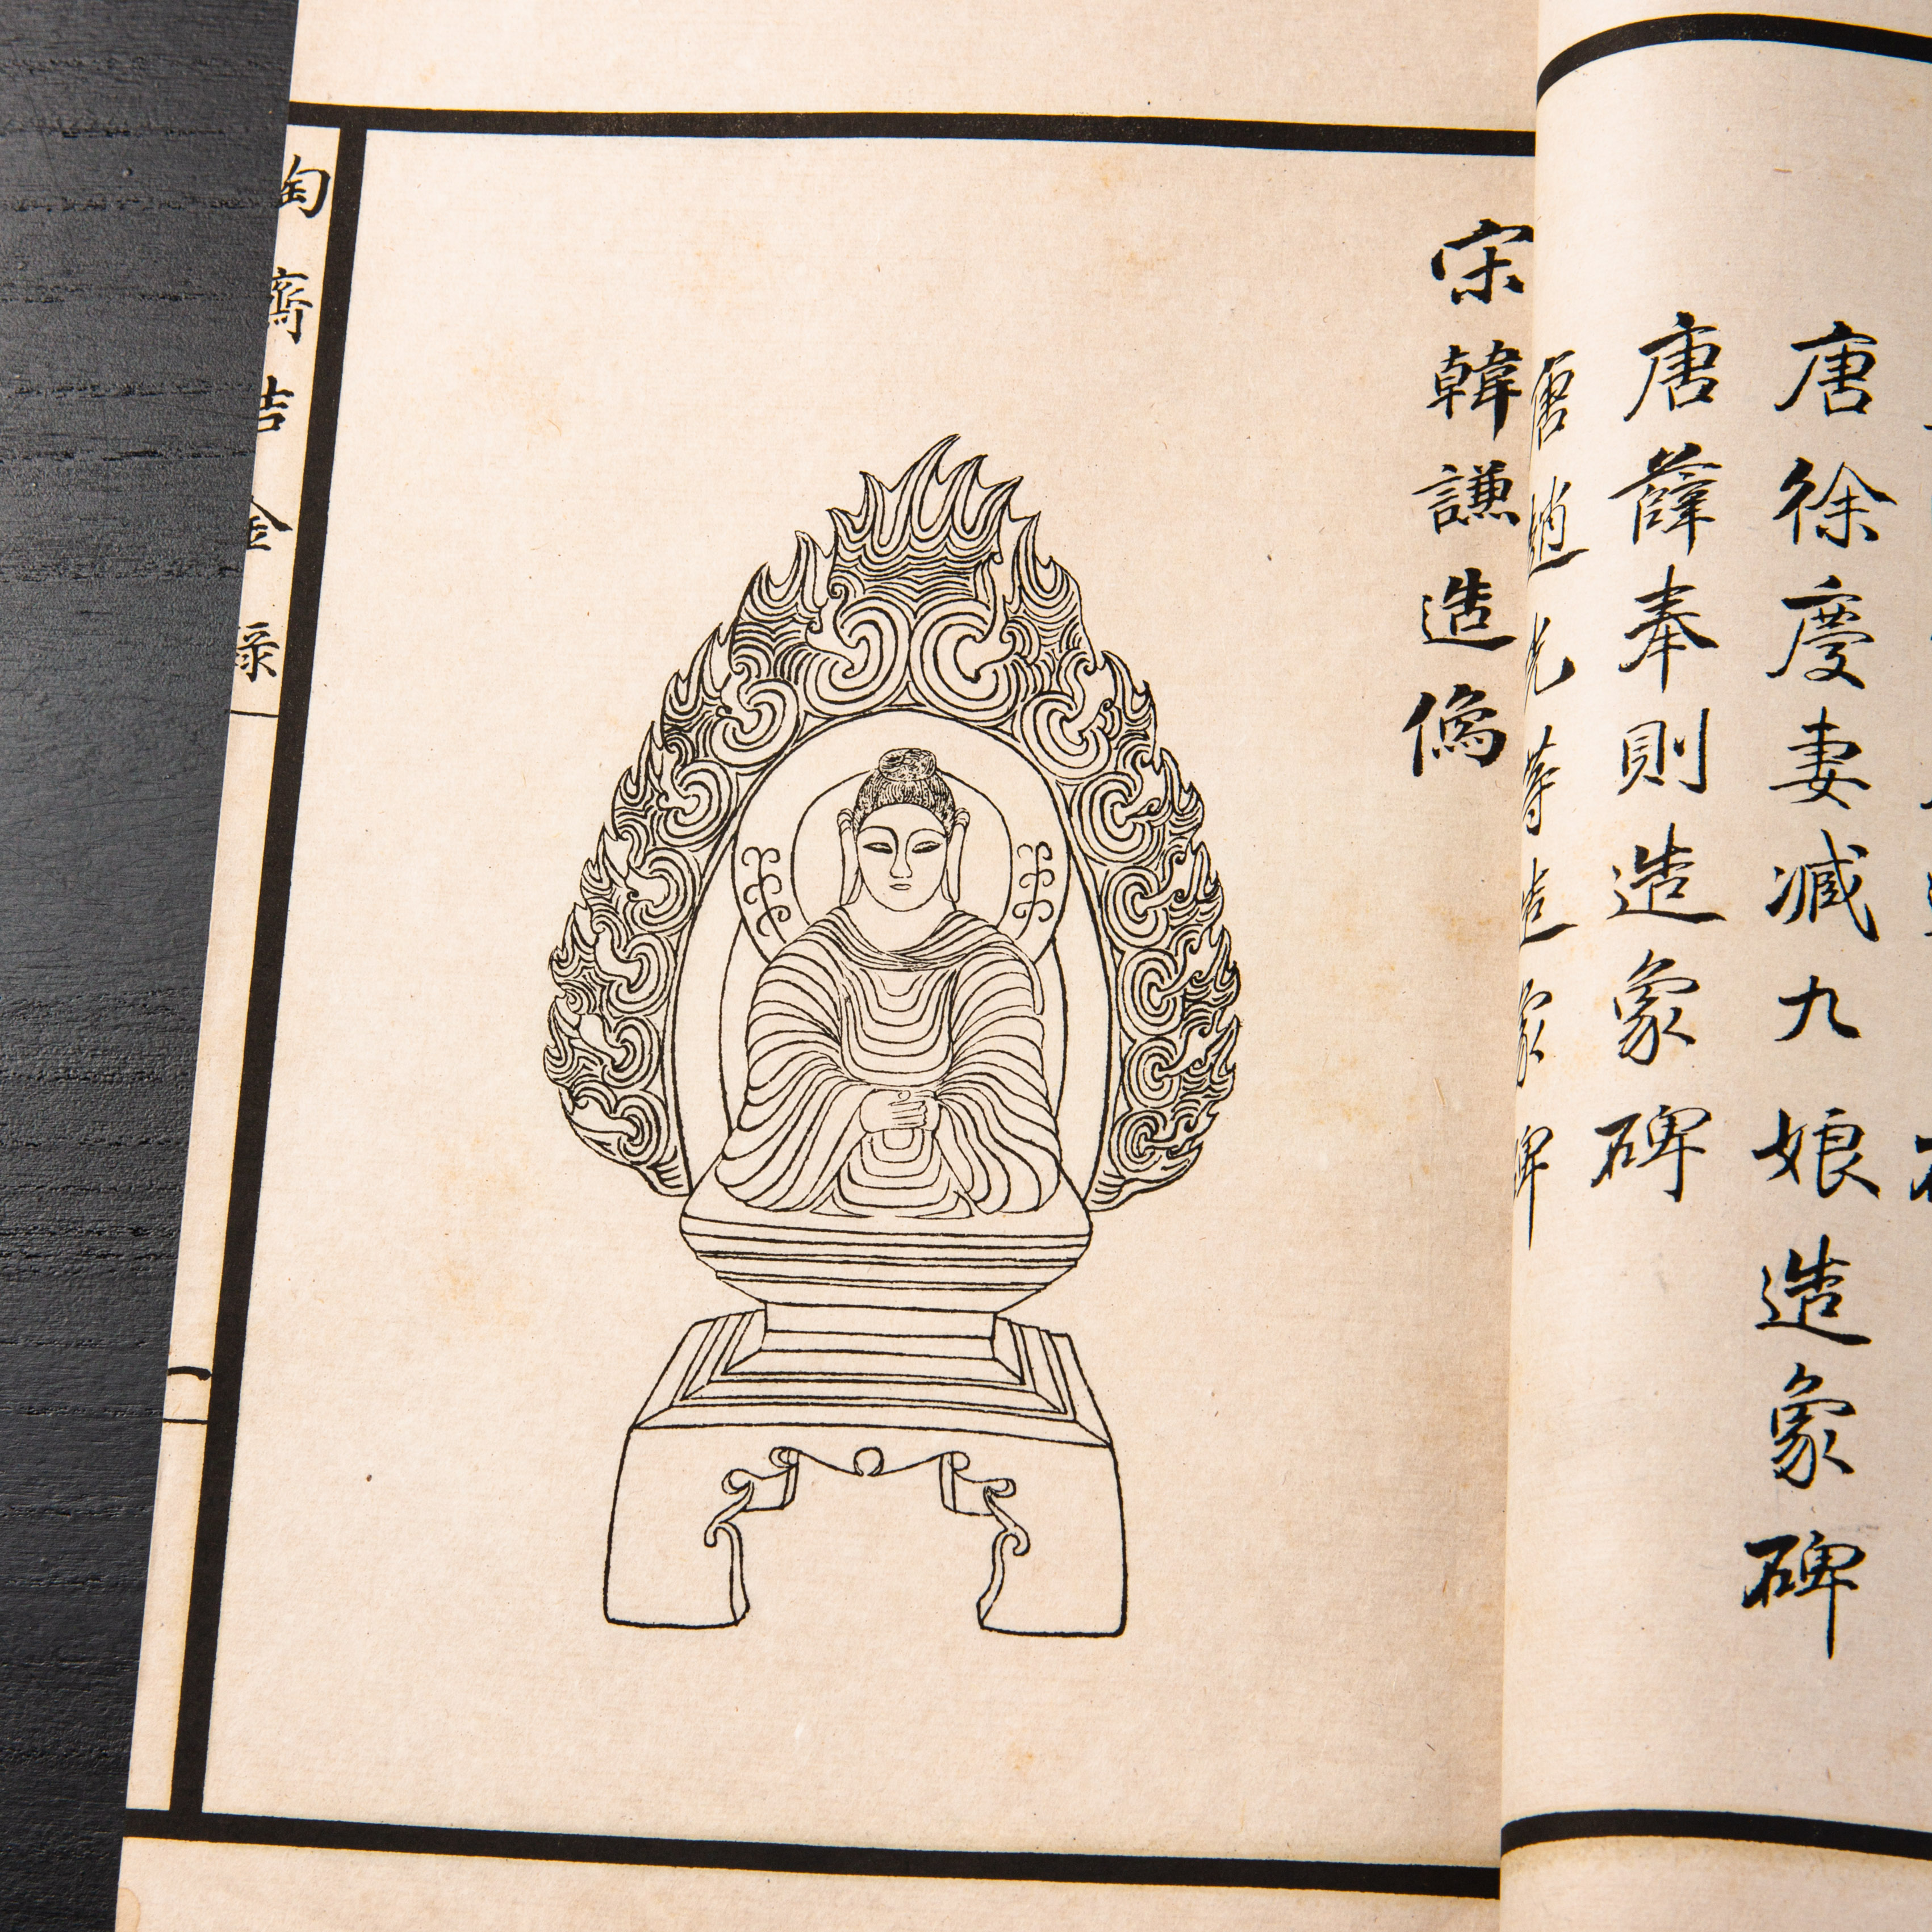 唐徐慶妻臧九娘造象碑
唐薛奉則造象碑
唐趙等造象碑
宋韓謙造像
陶齋吉金錄
一